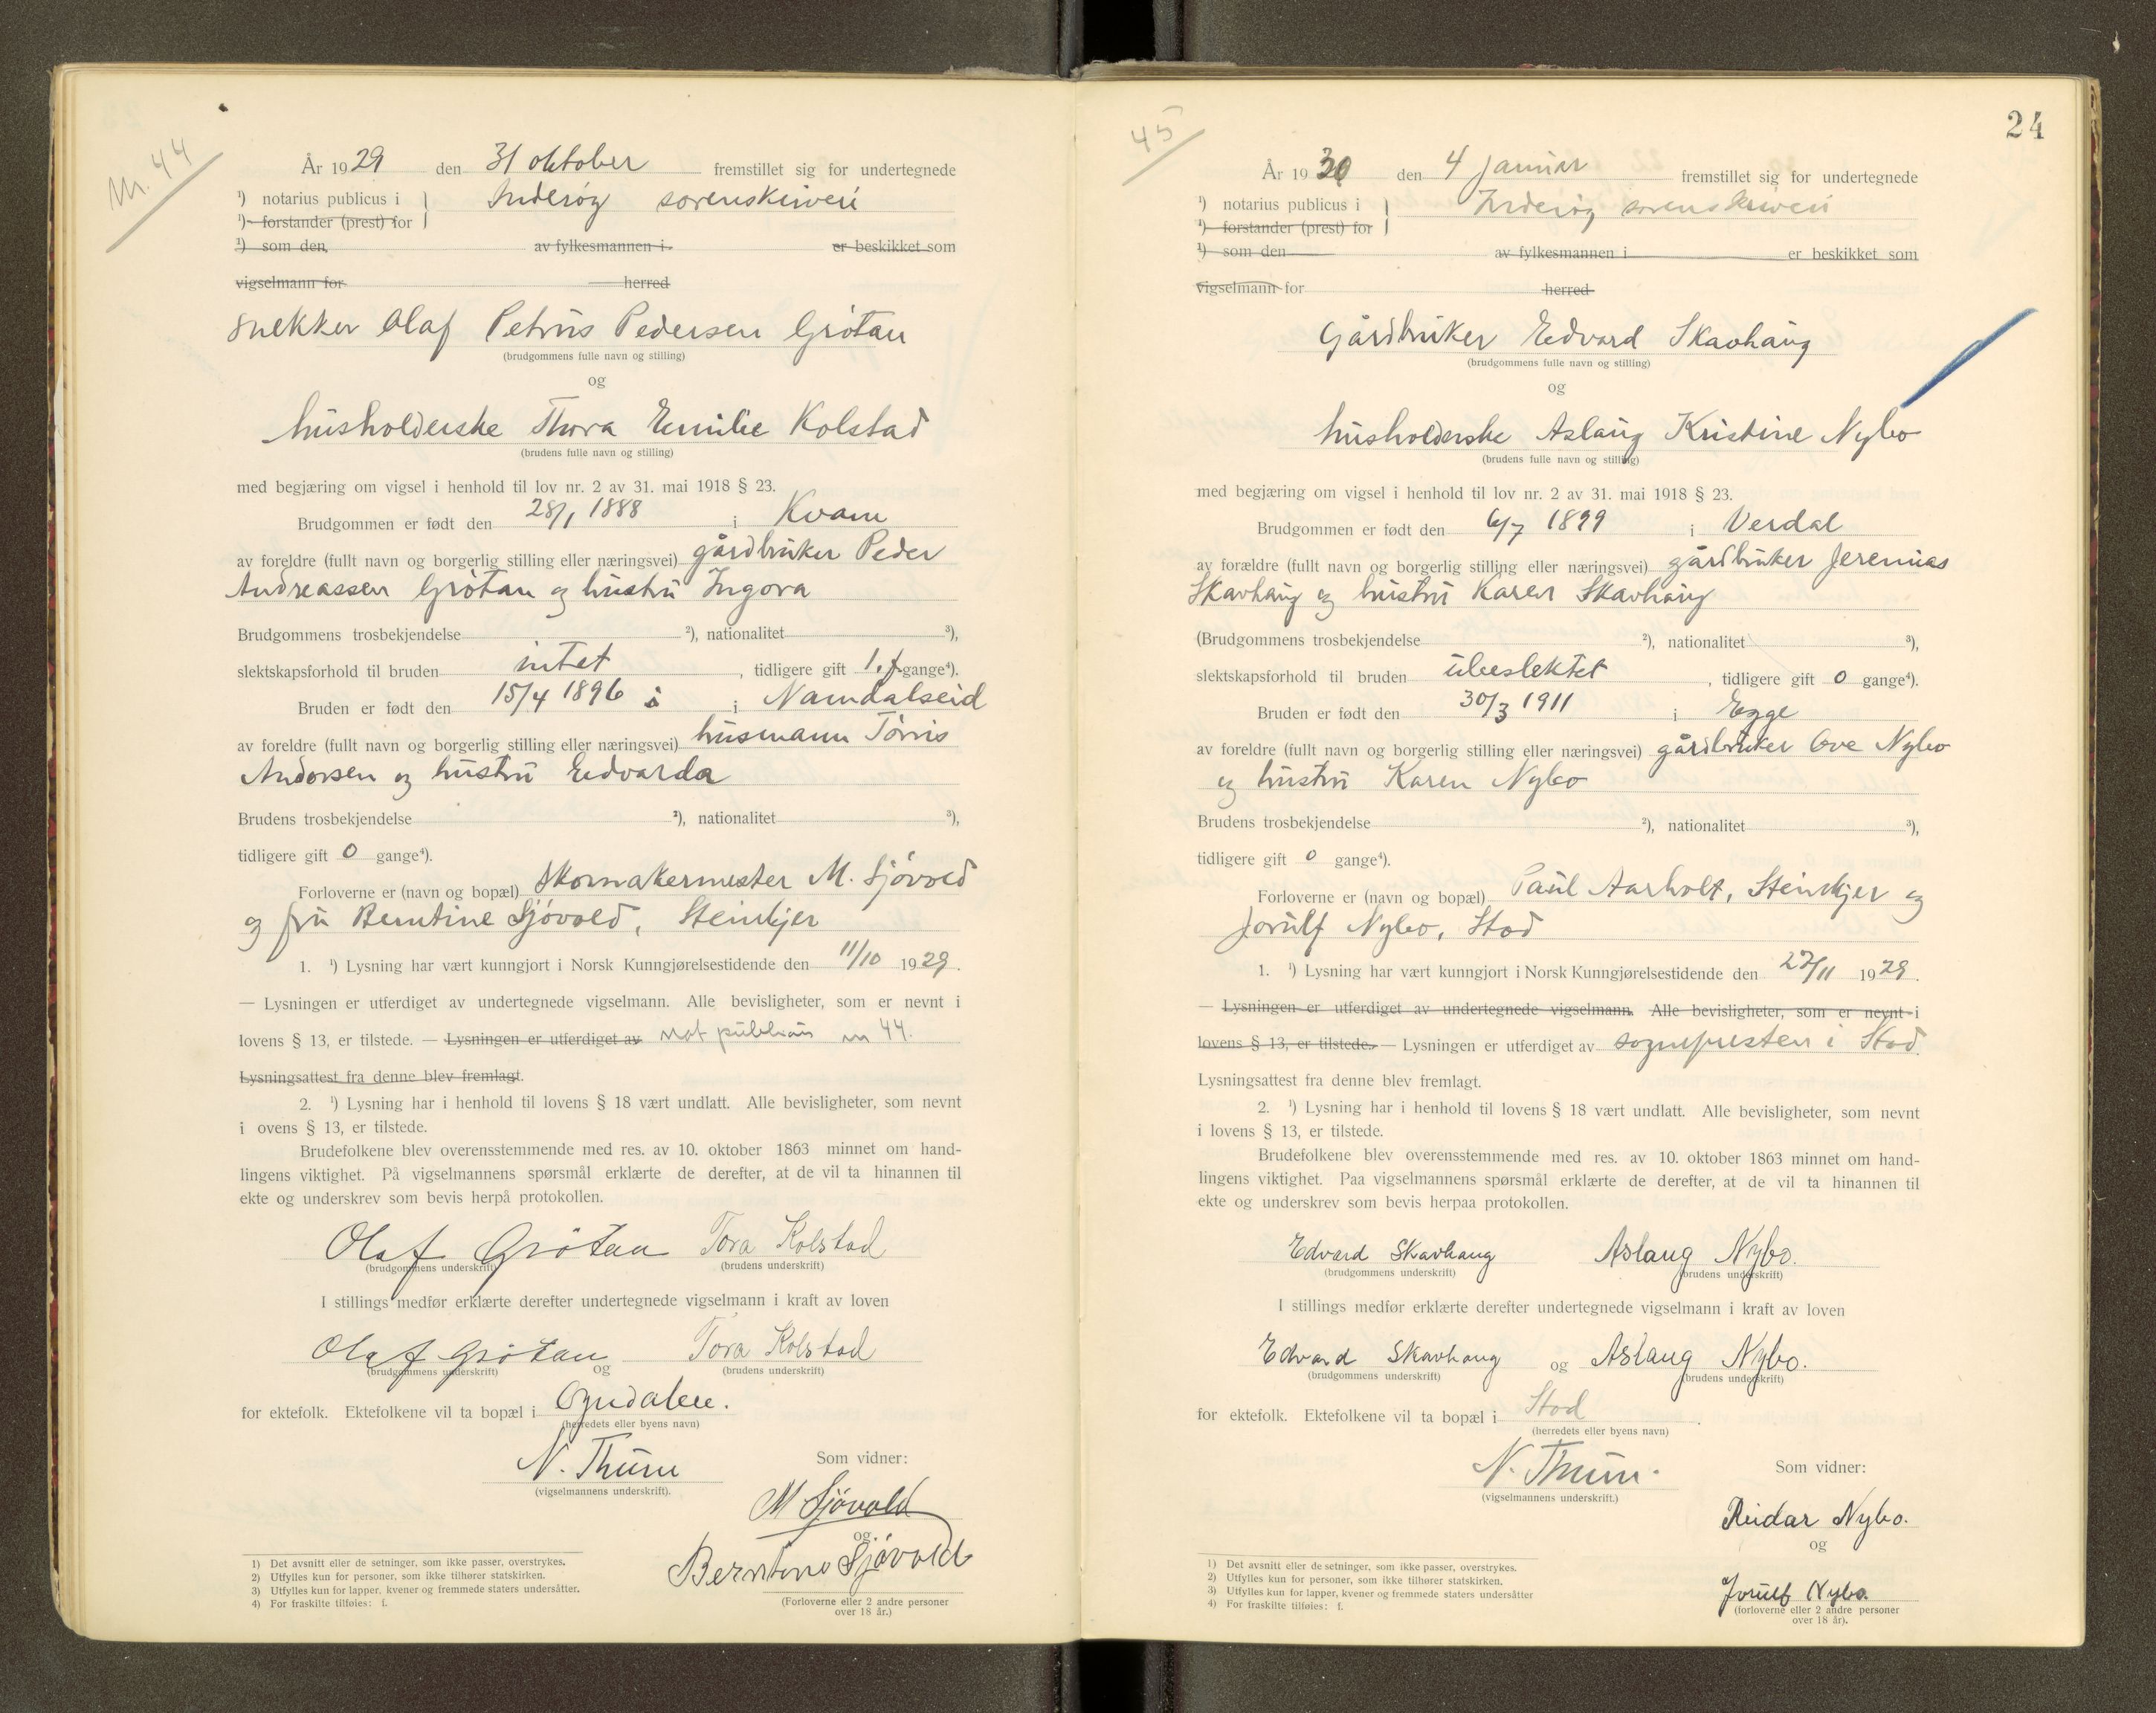 Nr. 44
År 1929 den 31 oktober fremstillet sig for undertegnede
¹) notarius publicus i Inderøy sorenskriveri
¹) forstander (prest) for
¹) som den, av fylkesmannen i er beskikket som
vigselmann for herred
snekker Olaf Petrus Pedersen Grøtan
(brudgommens fulle navn og stilling)
og
husholderske Thora Emilie Kolstad
(brudens fulle navn og stilling)
med begjæring om vigsel i henhold til lov nr. 2 av 31. mai 1918 § 23.
Brudgommen er født den 28/1 1888 i Kvam
av foreldre (fullt navn og borgerlig stilling eller næringsvei) gårdbruker Peder
Andreassen Grøtan og hustru Ingora
Brudgommens trosbekjendelse ²), nationalitet ³),
slektskapsforhold til bruden intet, tidligere gift 1. f. gange⁴).
Bruden er født den 15/4 1896 i i Namdalseid
av foreldre (fullt navn og borgerlig stilling eller næringsvei) husmann Tørris
Andorsen og hustru Edvarda
Brudens trosbekjendelse ²), nationalitet ³),
tidligere gift 0 gange⁴).
Forloverne er (navn og bopæl) Skomakermester M. Sjøvold
og fru Berntine Sjøvold, Steinkjer
1. ¹) Lysning har vært kunngjort i Norsk Kunngjørelsestidende den 11/10 1929.
— Lysningen er utferdiget av undertegnede vigselmann. Alle bevisligheter, som er nevnt i
lovens § 13, er tilstede. — Lysningen er utferdiget av not publicus nr 44.
Lysningsattest fra denne blev fremlagt.
2. ¹) Lysning har i henhold til lovens § 18 vært undlatt. Alle bevisligheter, som nevnt
i ovens § 13, er tilstede.
Brudefolkene blev overensstemmende med res. av 10. oktober 1863 minnet om hand-
lingens viktighet. På vigselmannens spørsmål erklærte de derefter, at de vil ta hinannen til
ekte og underskrev som bevis herpå protokollen.
Olaf Grötan Tora Kolstad
(brudgommens underskrift) (brudens underskrift)
I stillings medfør erklærte derefter undertegnede vigselmann i kraft av loven
Olaf Grötan og Tora Kolstad
(brudgommens underskrift) (brudens underskrift)
for ektefolk. Ektefolkene vil ta bopæl i Ogndalen.
(herredets eller byens navn)
N. Thune Som vidner:
(vigselmannens underskrift).
M Sjövold
og
Berntine Sjövold
(Forloverne eller 2 andre personer
over 18 år.)
1) Det avsnitt eller de setninger, som ikke passer, overstrykes.
2) Utfylles kun for personer, som ikke tilhører statskirken.
3) Utfylles kun for lapper, kvener og fremmede staters undersåtter.
4) For fraskilte tilføies: f.
24
45
År 1930 den 4 januar fremstillet sig for undertegnede
¹) notarius publicus i Inderøy sorenskriveri
¹) forstander (prest) for
¹) som den av fylkesmannen i er beskikket som
vigselmann for herred
Gårdbruker Edvard Skavhaug
(brudgommens fulle navn og stilling)
og
husholderske Aslaug Kristine Nybo
(brudens fulle navn og stilling)
med begjæring om vigsel i henhold til lov nr. 2 av 31. mai 1918 § 23.
Brudgommen er født den 6/7 1899 i Verdal
av forældre (fullt navn og borgerlig stilling eller næringsvei) gårdbruker Jeremias
Skavhaug og hustru Karen Skavhaug
(Brudgommens trosbekjendelse ²), nationalitet ³),
slektskapsforhold til bruden ubeslektet, tidligere gift 0 gange⁴).
Bruden er født den 30/3 1911 i Egge
av foreldre (fullt navn og borgerlig stilling eller næringsvei) gårdbruker Ove Nybo
og hustru Karen Nybo
Brudens trosbekjendelse ²), nationalitet ³),
tidligere gift 0 gange⁴).
Forloverne er (navn og bopæl) Paul Aarholt, Steinkjer og
Jorulf Nybo, Stod
1. ¹) Lysning har vært kunngjort i Norsk Kunngjørelsestidende den 27/11 1929.
— Lysningen er utferdiget av undertegnede vigselmann. Alle bevisligheter, som er nevnt i
lovens § 13, er tilstede. — Lysningen er utferdiget av sognepresten i Stod.
Lysningsattest fra denne blev fremlagt.
2. ¹) Lysning har i henhold til lovens § 18 vært undlatt. Alle bevisligheter, som nevnt
i lovens § 13, er tilstede.
Brudefolkene blev overensstemmende med res. av 10. oktober 1863 minnet om hand-
lingens viktighet. Paa vigselmannens spørsmål erklærte de derefter, at de vil ta hinannen til
ekte og underskrev som bevis herpaa protokollen.
Edvard Skavhaug Aslaug Nybo.
(brudgommens underskrift) (brudens underskrift)
I stillings medfør erklærte derefter undertegnede vigselmann i kraft av loven
Edvard Skavhaug og Aslaug Nybo.
(brudgommens underskrift) (brudens underskrift)
for ektefolk. Ektefolkene vil ta bopæl i Stod.
(herredets eller byens navn)
N. Thune. Som vidner:
(vigselmannens underskrift.)
Reidar Nybo.
og
Jorulf Nybo.
(forloverne eller 2 andre personer
over 18 år).
1) Det avsnitt eller de setninger, som ikke passer, overstrykes.
2) Utfylles kun for personer, som ikke tilhører statskirken.
3) Utfylles kun for lapper, kvener og fremmede staters undersåtter
4) For fraskilte tilføies: f.